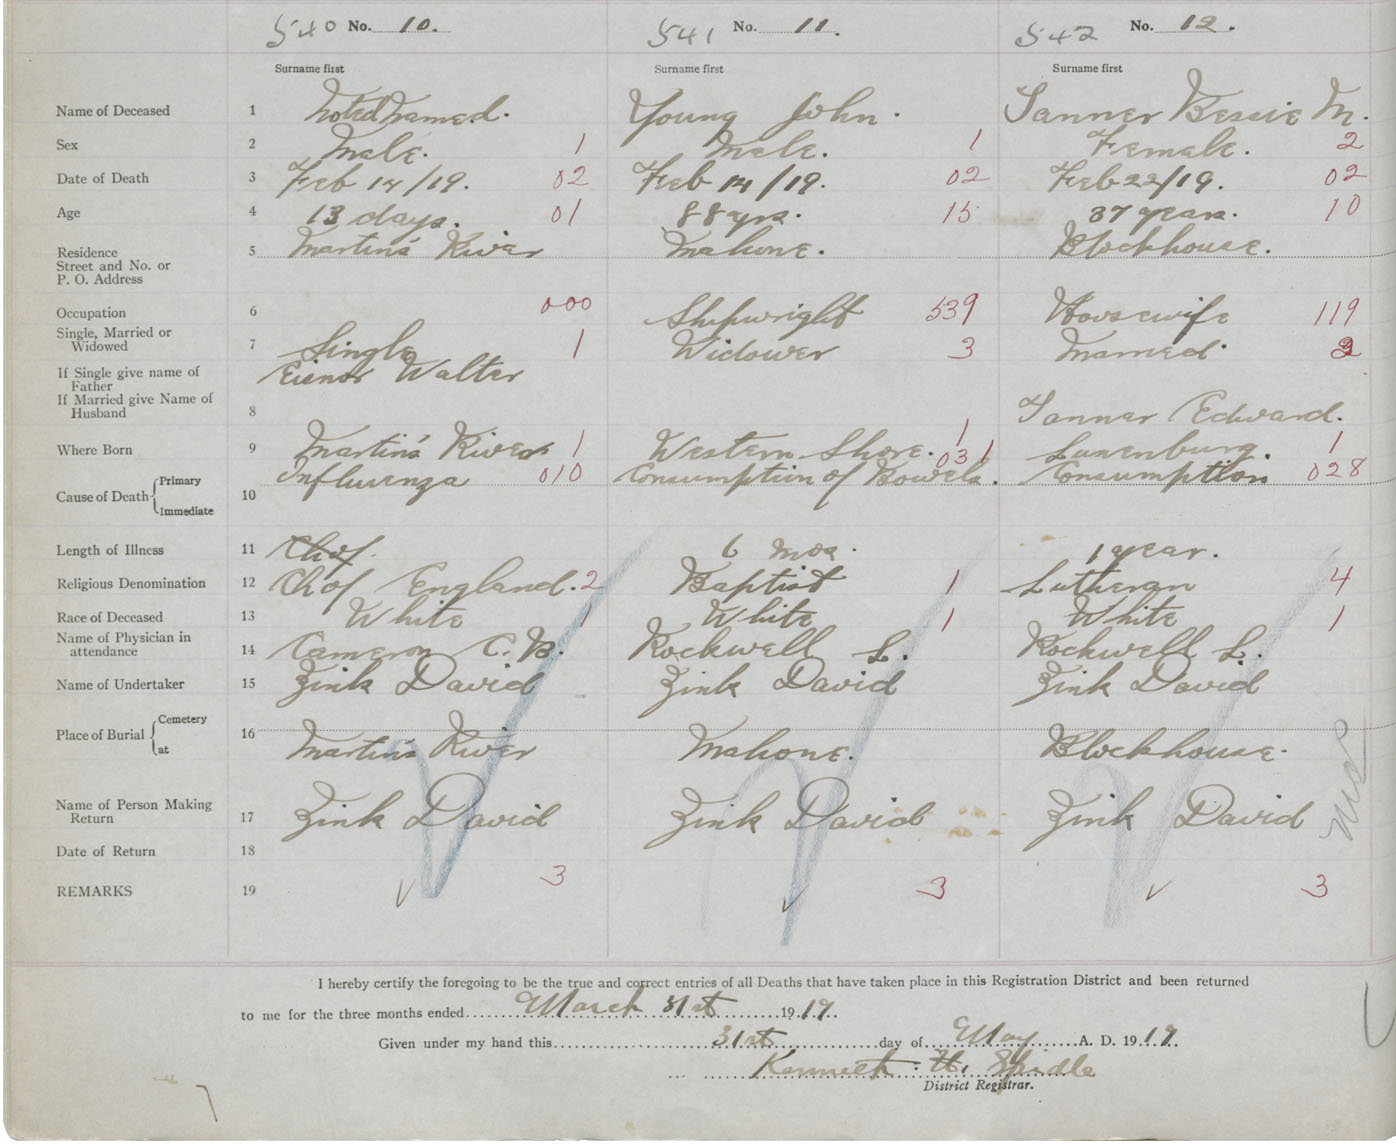 540 No. 10. 541 No. 11. 542 No. 12.
Surname first Surname first Surname first
Name of Deceased 1 Not Named. Young John. Tanner Bessie M.
Sex 2 Male. 1 Male. 1 Female. 2
Date of Death 3 Feb 14/19. 02 Feb 14/19. 02 Feb 22/19. 02
Age 4 13 days. 01 88 yrs. 15 37 years. 10
Residence 5 Martin's River Mahone. Blockhouse.
Street and No. or
P. O. Address
Occupation 6 000 Shipwright 539 Housewife 119
Single, Married or
Widowed 7 Single 1 Widower 3 Married.
If Single give name of Eisnor Walter
Father
If Married give Name of
Husband 8 Tanner Edward.
Where Born 9 Martin's River 1 Western Shore. 1 Lunenburg. 1
Cause of Death Primary Influenza 010 Consumption of Bowels. 031 Consumption 028
Immediate 10
Length of Illness 11 Chof 6 mos. 1 year.
Religious Denomination 12 Chof England. 2 Baptist 1 Lutheran 4
Race of Deceased 13 White 1 White 1 White 1
Name of Physician in
attendance 14 Cameron C. B. Rockwell L. Rockwell L.
Name of Undertaker 15 Zink David Zink David Zink David
Place of Burial Cemetery 16
at Martin's River Mahone. Blockhouse.
Name of Person Making
Return 17 Zink David Zink David Zink David
Date of Return 18
REMARKS 19 3 3 3
I hereby certify the foregoing to be the true and correct entries of all Deaths that have taken place in this Registration District and been returned
to me for the three months ended March 31st 1919.
Given under my hand this 31st day of May A. D. 1919.
Kenneth H. Spidle
District Registrar.